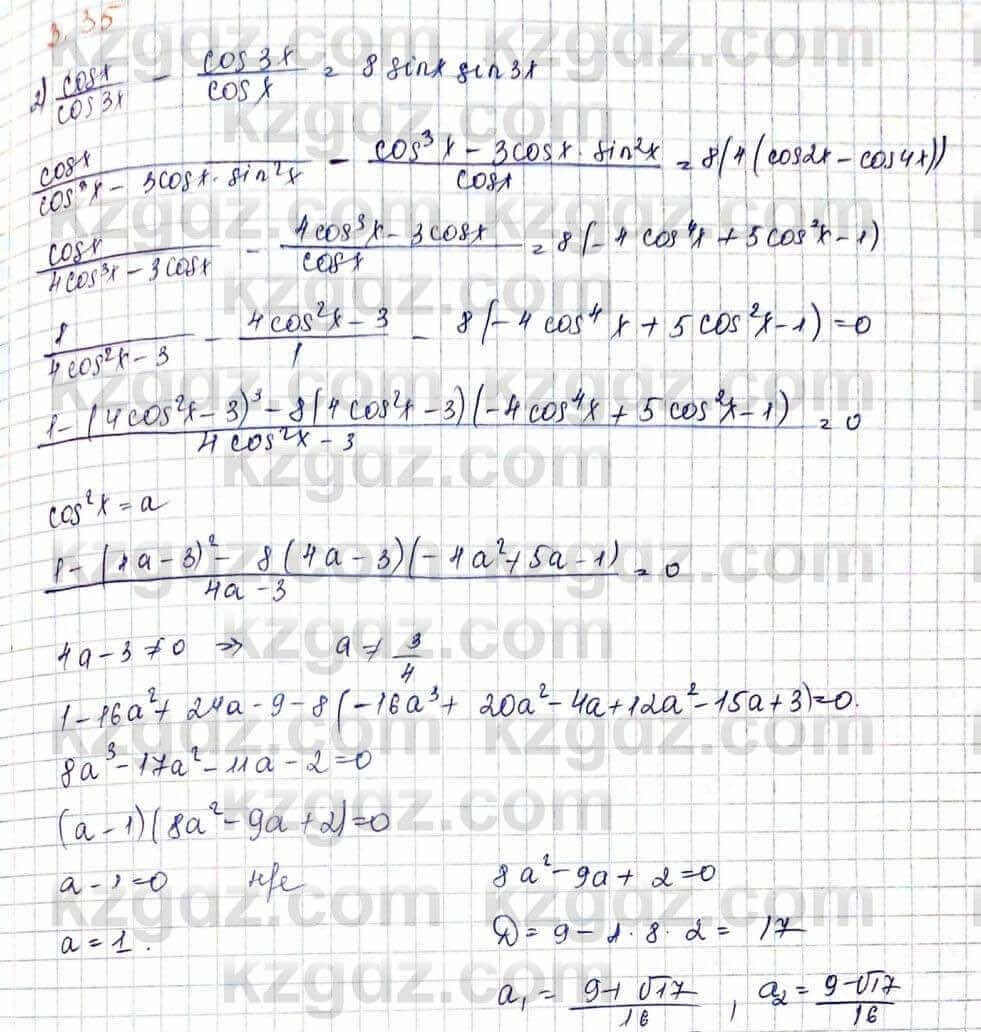 3.35
2) cosx/cos3x - cos3x/cosx = 8 sinx sin3x
cosx/(cos³x - 3cosx · sin²x) - (cos³x - 3cosx · sin²x)/cosx = 8(4(cos2x - cos4x))
cosx/(4cos³x - 3cosx) - (4cos³x - 3cosx)/cosx = 8(-4cos⁴x + 5cos²x - 1)
1/(4cos²x - 3) - (4cos²x - 3)/1 - 8(-4cos⁴x + 5cos²x - 1) = 0
(1 - (4cos²x - 3)³ - 8(4cos²x - 3)(-4cos⁴x + 5cos²x - 1))/(4cos²x - 3) = 0
cos²x = a
(1 - (4a - 3)² - 8(4a - 3)(-4a² + 5a - 1))/(4a - 3) = 0
4a - 3 ≠ 0 ⇒ a ≠ 3/4
1 - 16a² + 24a - 9 - 8(-16a³ + 20a² - 4a + 12a² - 15a + 3) = 0.
8a³ - 17a² - 11a - 2 = 0
(a - 1)(8a² - 9a + 2) = 0
a - 1 = 0 н/е 8a² - 9a + 2 = 0
a = 1. D = 9 - 1 · 8 · 2 = 17
a₁ = (9 + √17)/16, a₂ = (9 - √17)/16
kzgdz.com